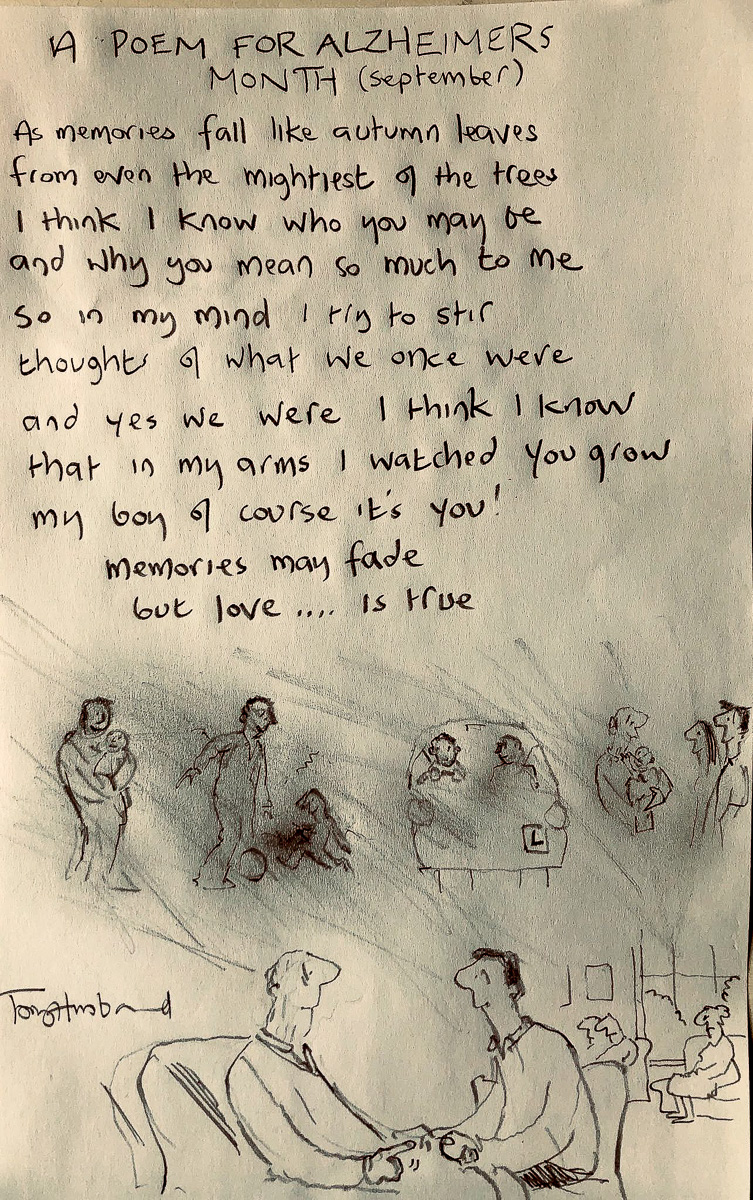 A POEM FOR ALZHEIMERS
MONTH (September)
As memories fall like autumn leaves
from even the mightiest of the trees
I think I know who you may be
and why you mean so much to me
so in my mind I try to stir
thoughts of what we once were
and yes we were I think I know
that in my arms I watched you grow
my boy of course it's you!
memories may fade
but love .... is true
L
Tony Husband